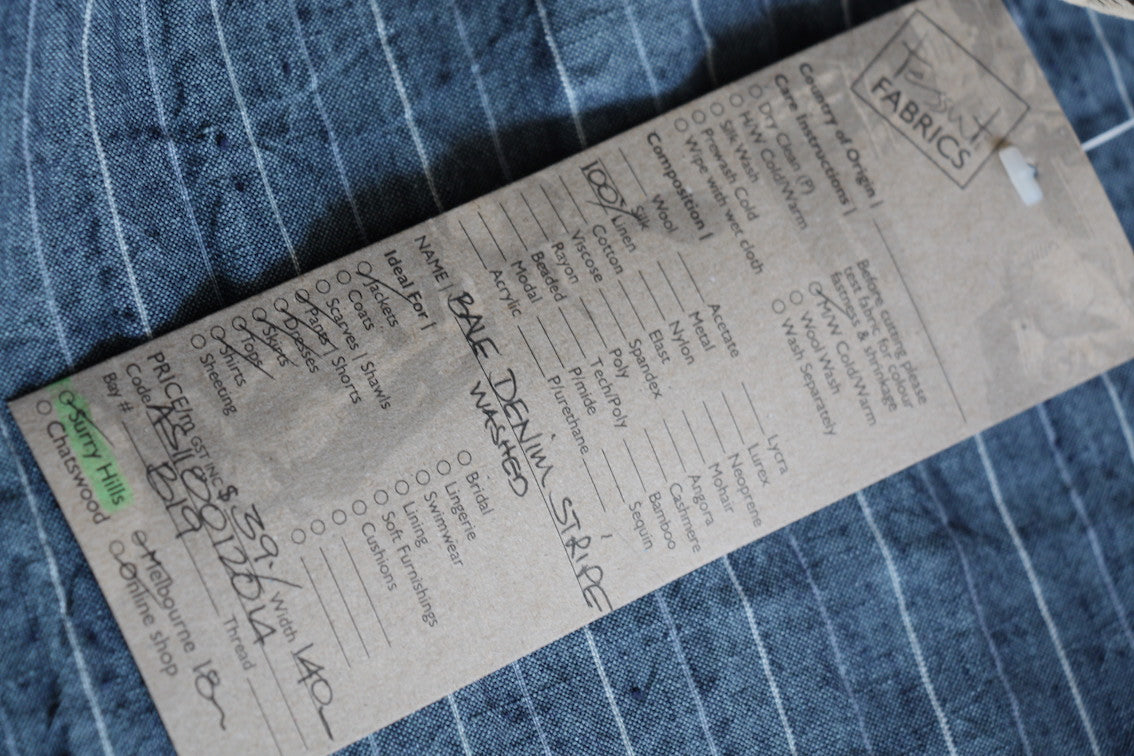 Tessuti
FABRICS
Country of Origin |
Care Instructions |
Dry Clean (P)
H/W Cold/Warm
Silk Wash
Prewash Cold
Wipe with wer cloth
Before cutting please
test fabric for colour
fastness & shrinkage
M/W Cold/Warm
Wool Wash
Wash Separately
Composition |
Wool
Silk
100% Linen
Cotton
Viscose
Rayon
Beaded
Modal
Acrylic
Acetate
Metal
Nylon
Elast
Spandex
Poly
Tech/Poly
P/mide
P/urethane
Lycra
Lurex
Neoprene
Mohair
Angora
Cashmere
Bamboo
Sequin
NAME | BALE DENIM STRIPE
WASHED
Ideal For |
Jackets
Coats
Scarves | Shawls
Pants | Shorts
Dresses
Skirts
Tops
Shirts
Sheeting
Bridal
Lingerie
Swimwear
Lining
Soft Furnishings
Cushions
PRICE/m GST INC $39./ Width 140
Code
Bay # B19 Thread
Surry Hills Melbourne 18
Chatswood Online shop